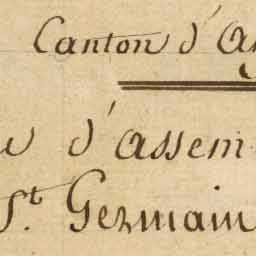 Canton d'A
e d'assem
St. Germain